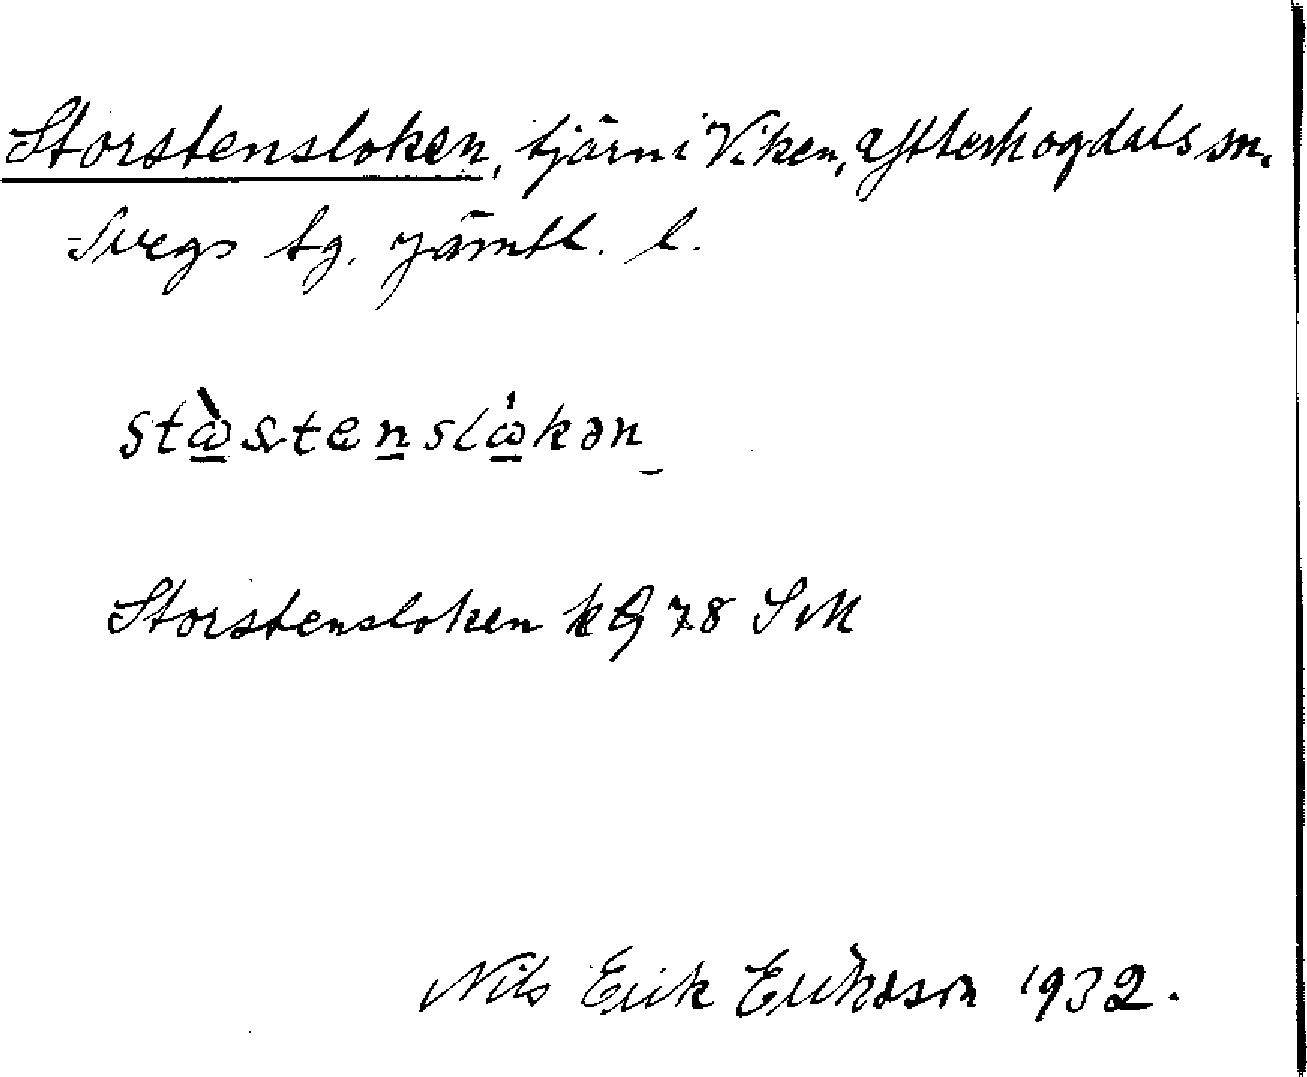 Storstensloken, tjärn i Viken, Ytterhogdals sn.
Svegs tg. Jämtl. l.
Storstensloken k 78 SvM
Nils Erik Erikson 1932.